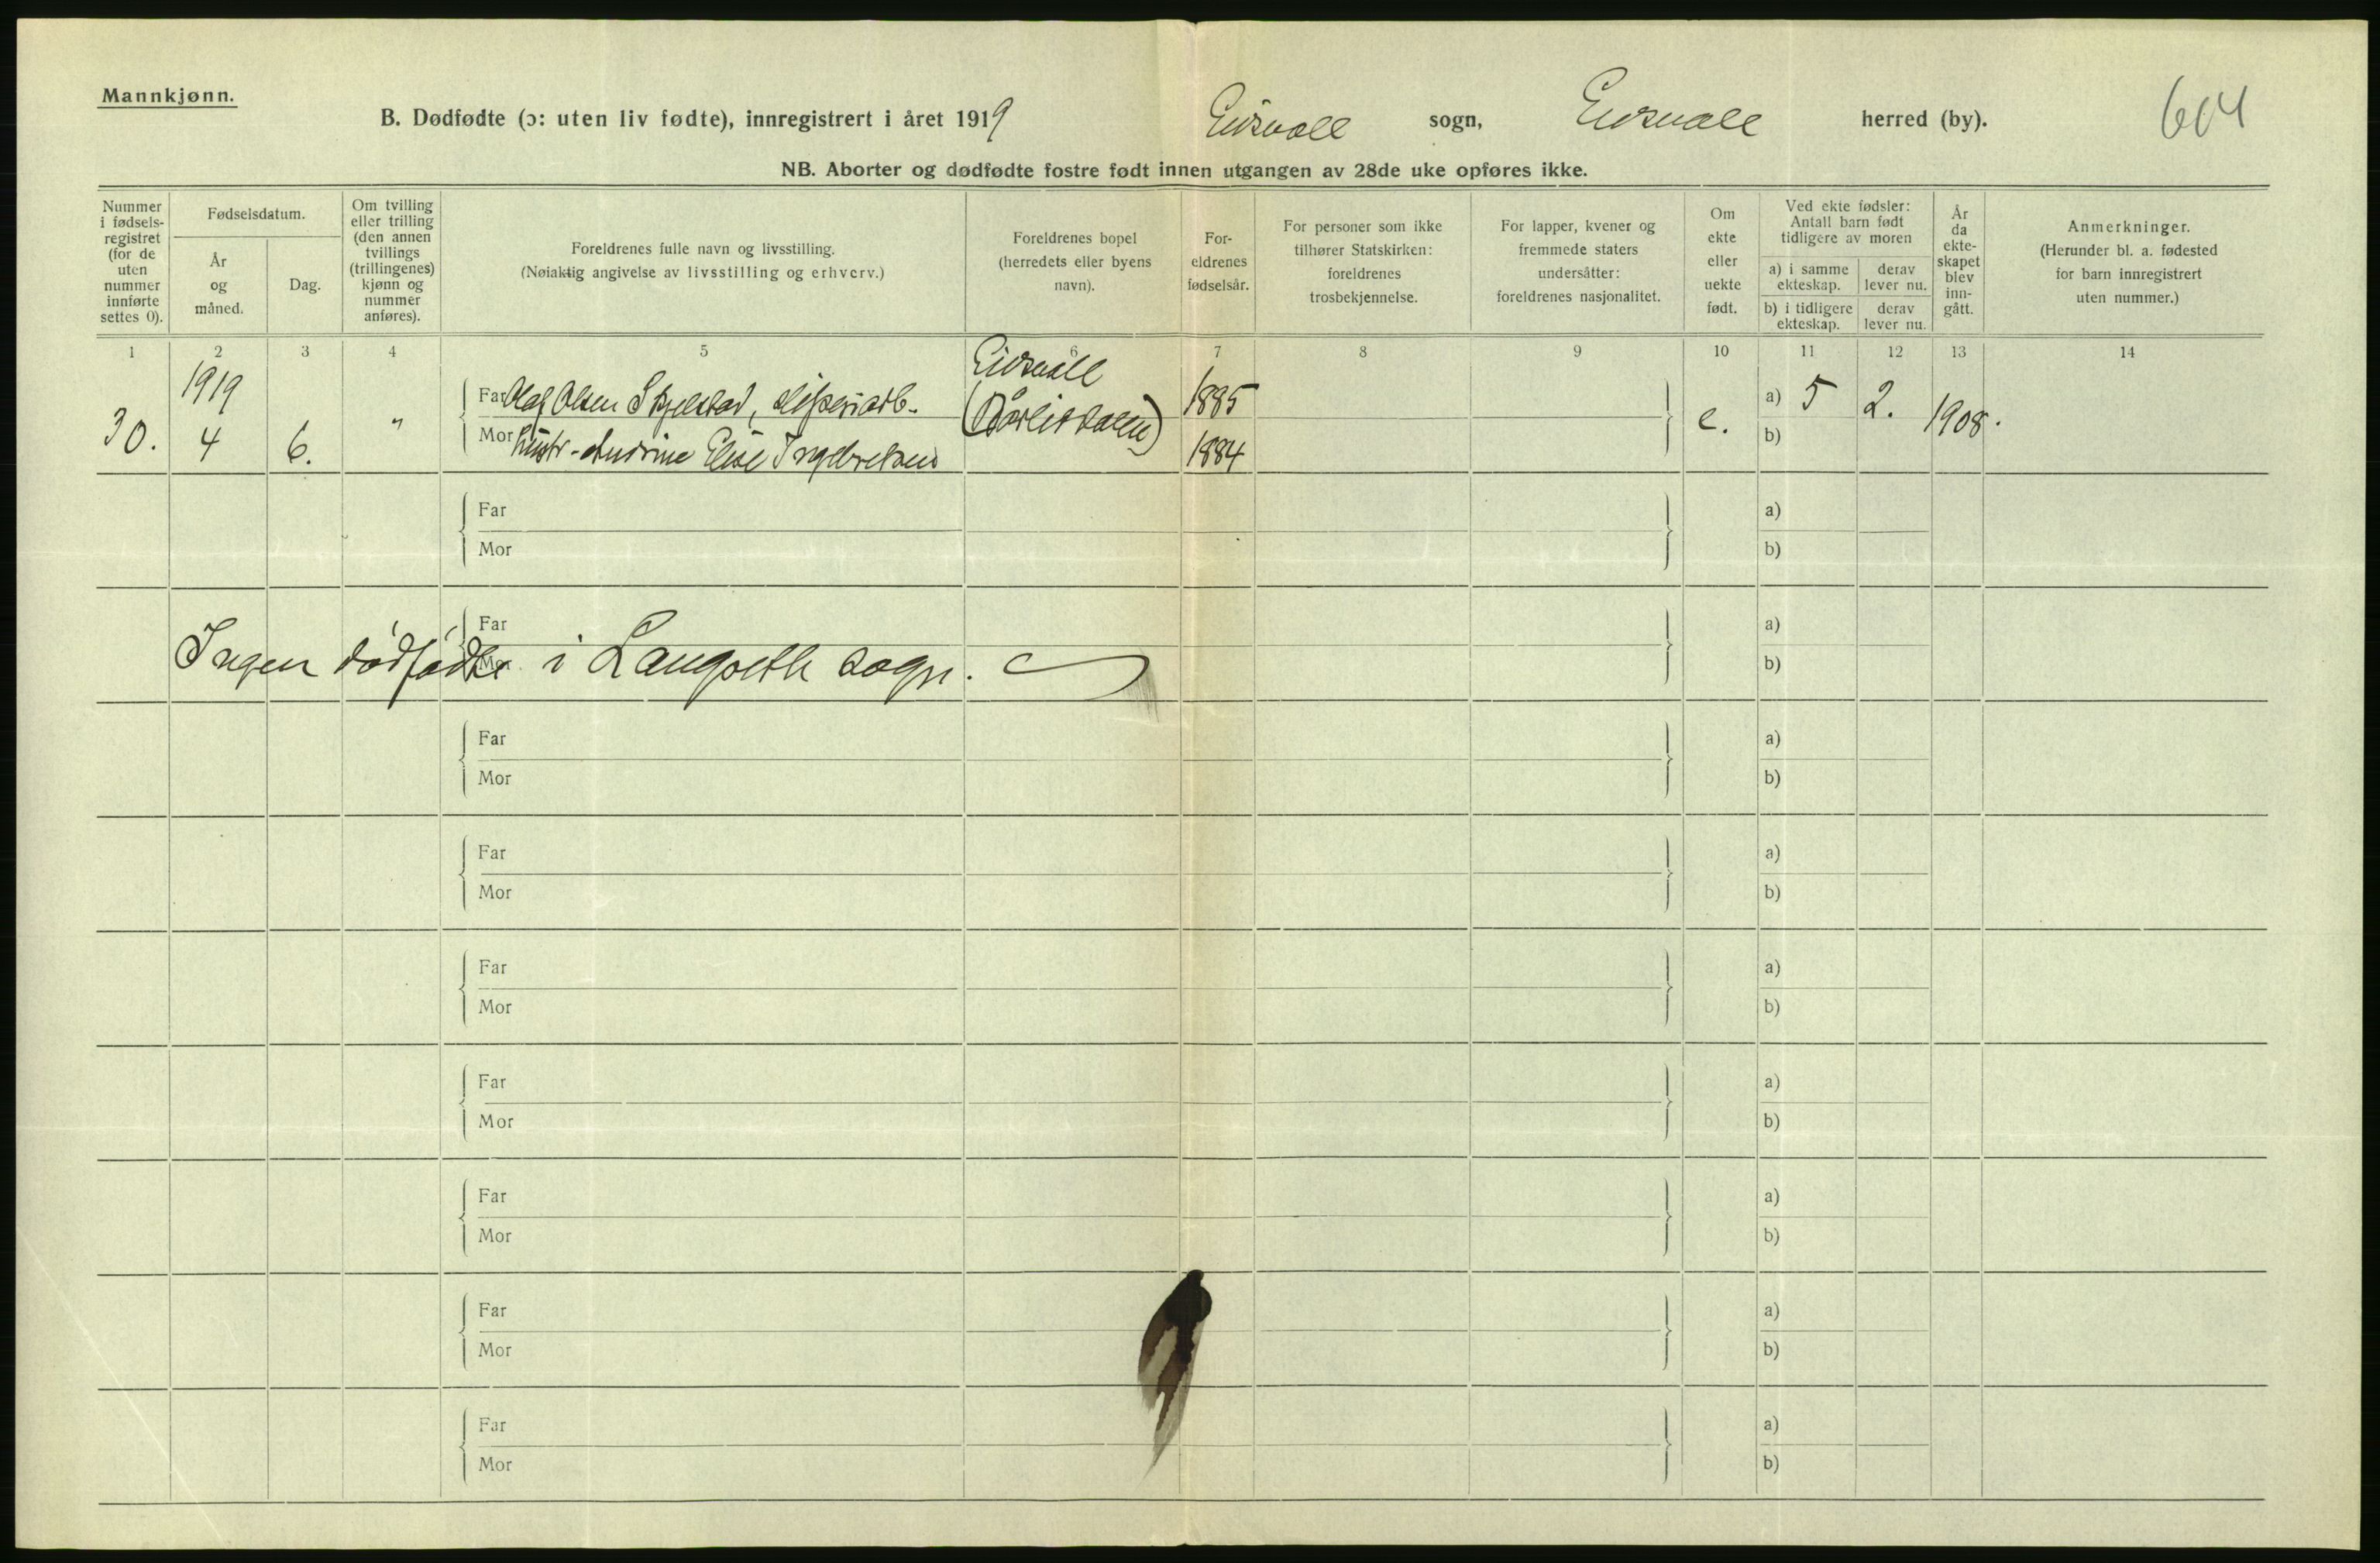 Mannkjønn.
B. Dødfødte (ɔ: uten liv fødte), innregistrert i året 1919 Eidsvoll sogn, Eidsvoll herred (by).
604
NB. Aborter og dødfødte fostre født innen utgangen av 28de uke opføres ikke.
Nummer i fødsels-registret (for de uten nummer innførte settes 0).
Fødselsdatum.
År og måned.
Dag.
Om tvilling eller trilling (den annen tvillings (trillingenes) kjønn og nummer anføres).
Foreldrenes fulle navn og livsstilling.
(Nøiaktig angivelse av livsstilling og erhverv.)
Foreldrenes bopel (herredets eller byens navn).
For-eldrenes fødselsår.
For personer som ikke tilhører Statskirken: foreldrenes trosbekjennelse.
For lapper, kvener og fremmede staters undersåtter: foreldrenes nasjonalitet.
Om ekte eller uekte født.
Ved ekte fødsler: Antall barn født tidligere av moren
a) i samme ekteskap.
derav lever nu.
b) i tidligere ekteskap.
derav lever nu.
År da ekte-skapet blev inn-gått.
Anmerkninger.
(Herunder bl. a. fødested for barn innregistrert uten nummer.)
1 2 3 4 5 6 7 8 9 10 11 12 13 14
30. 1919 4 6. "
Far Olaf Olsen Skjelstad, sliperiarb. Eidsvoll 1885 e. a) 5 2. 1908.
Mor Hustr. Andrine Elise Ingebretsen (Bårlidalen) 1884 b)
Far a)
Mor b)
Far a)
Ingen dødfødte i Langseth sogn.
Mor b)
Far a)
Mor b)
Far a)
Mor b)
Far a)
Mor b)
Far a)
Mor b)
Far a)
Mor b)
Far a)
Mor b)
Far a)
Mor b)